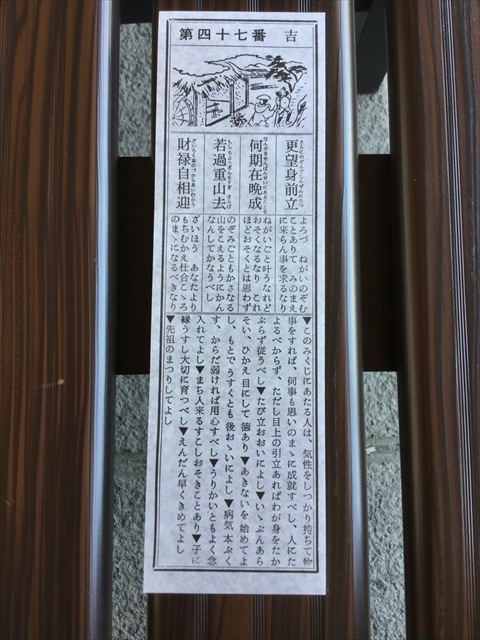 第四十七番 吉
更望身前立
さらにのぞむしんぜんにたつことを
何期在晩成
なんぞきせんばんせいにあることを
若過重山去
もしちょうざんをすぎさらば
財禄自相迎
ざいろくおのずからあいむかえん
よろづ ねがいのぞむ
ことありて みのまえ
に来らん事を求るなり
ねがいごと叶うなれど
おそくなるなり これ
ほどおそくとは思わず
のぞみごともかさなる
山をこえるようにかん
なんしてかなうべし
ざいほう あなたより
もちむかえ仕合こゝろ
のまゝになるべきなり
▼このみくじにあたる人は、気性をしっかり持ちて物
事をすれば、何事も思いのまゝに成就すべし、人にた
よるべからず、ただし目上の引立あればわが身をたか
ぶらず従うべし▼たび立おおいによし▼いゝぶんあら
そい、ひかえ目にして徳あり▼あきないを始めてよ
し、もとでうすくとも後おゝいによし▼病気 本ぷく
す、からだ弱ければ用心すべし▼うりかいともよく念
入れてよし▼まち人来るすこしおそきことあり▼子に
縁うすし大切に育つべし▼えんだん早くきめてよし
▼先祖のまつりしてよし